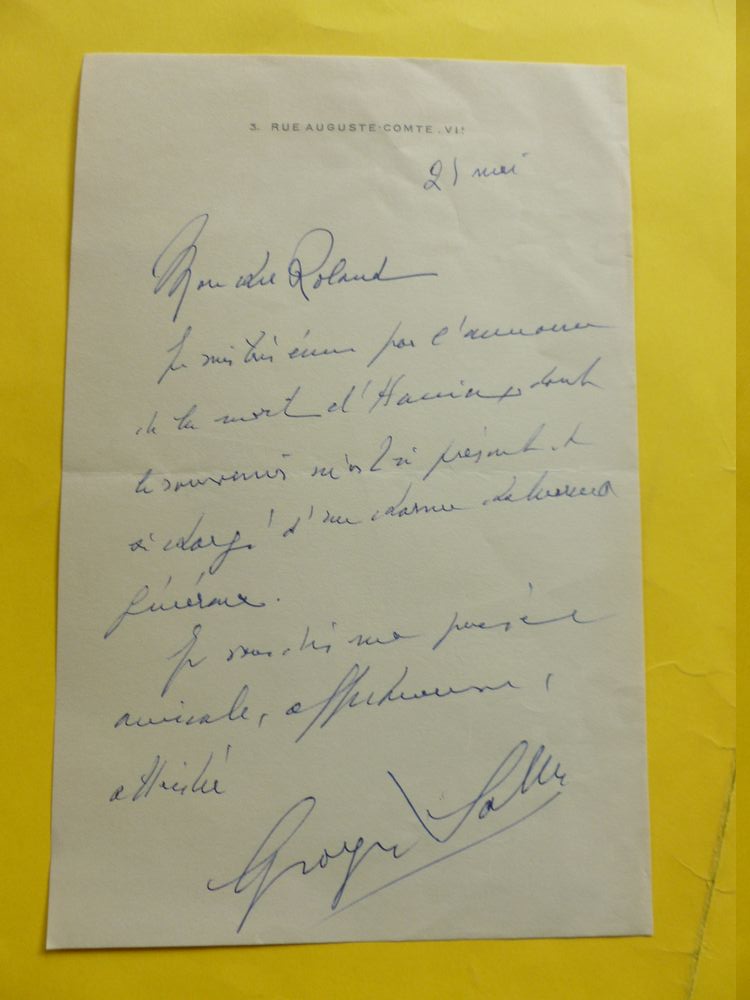 3. RUE AUGUSTE-COMTE. VIᵉ
21 mai
Mon cher Roland
Je suis très ému par l'annonce
de la mort d'Hania, dont
le souvenir m'est si présent et
si chargé d'une
généreux.
Je vous dis ma pensée
amicale, affectueuse,
attristée
Georges Salles